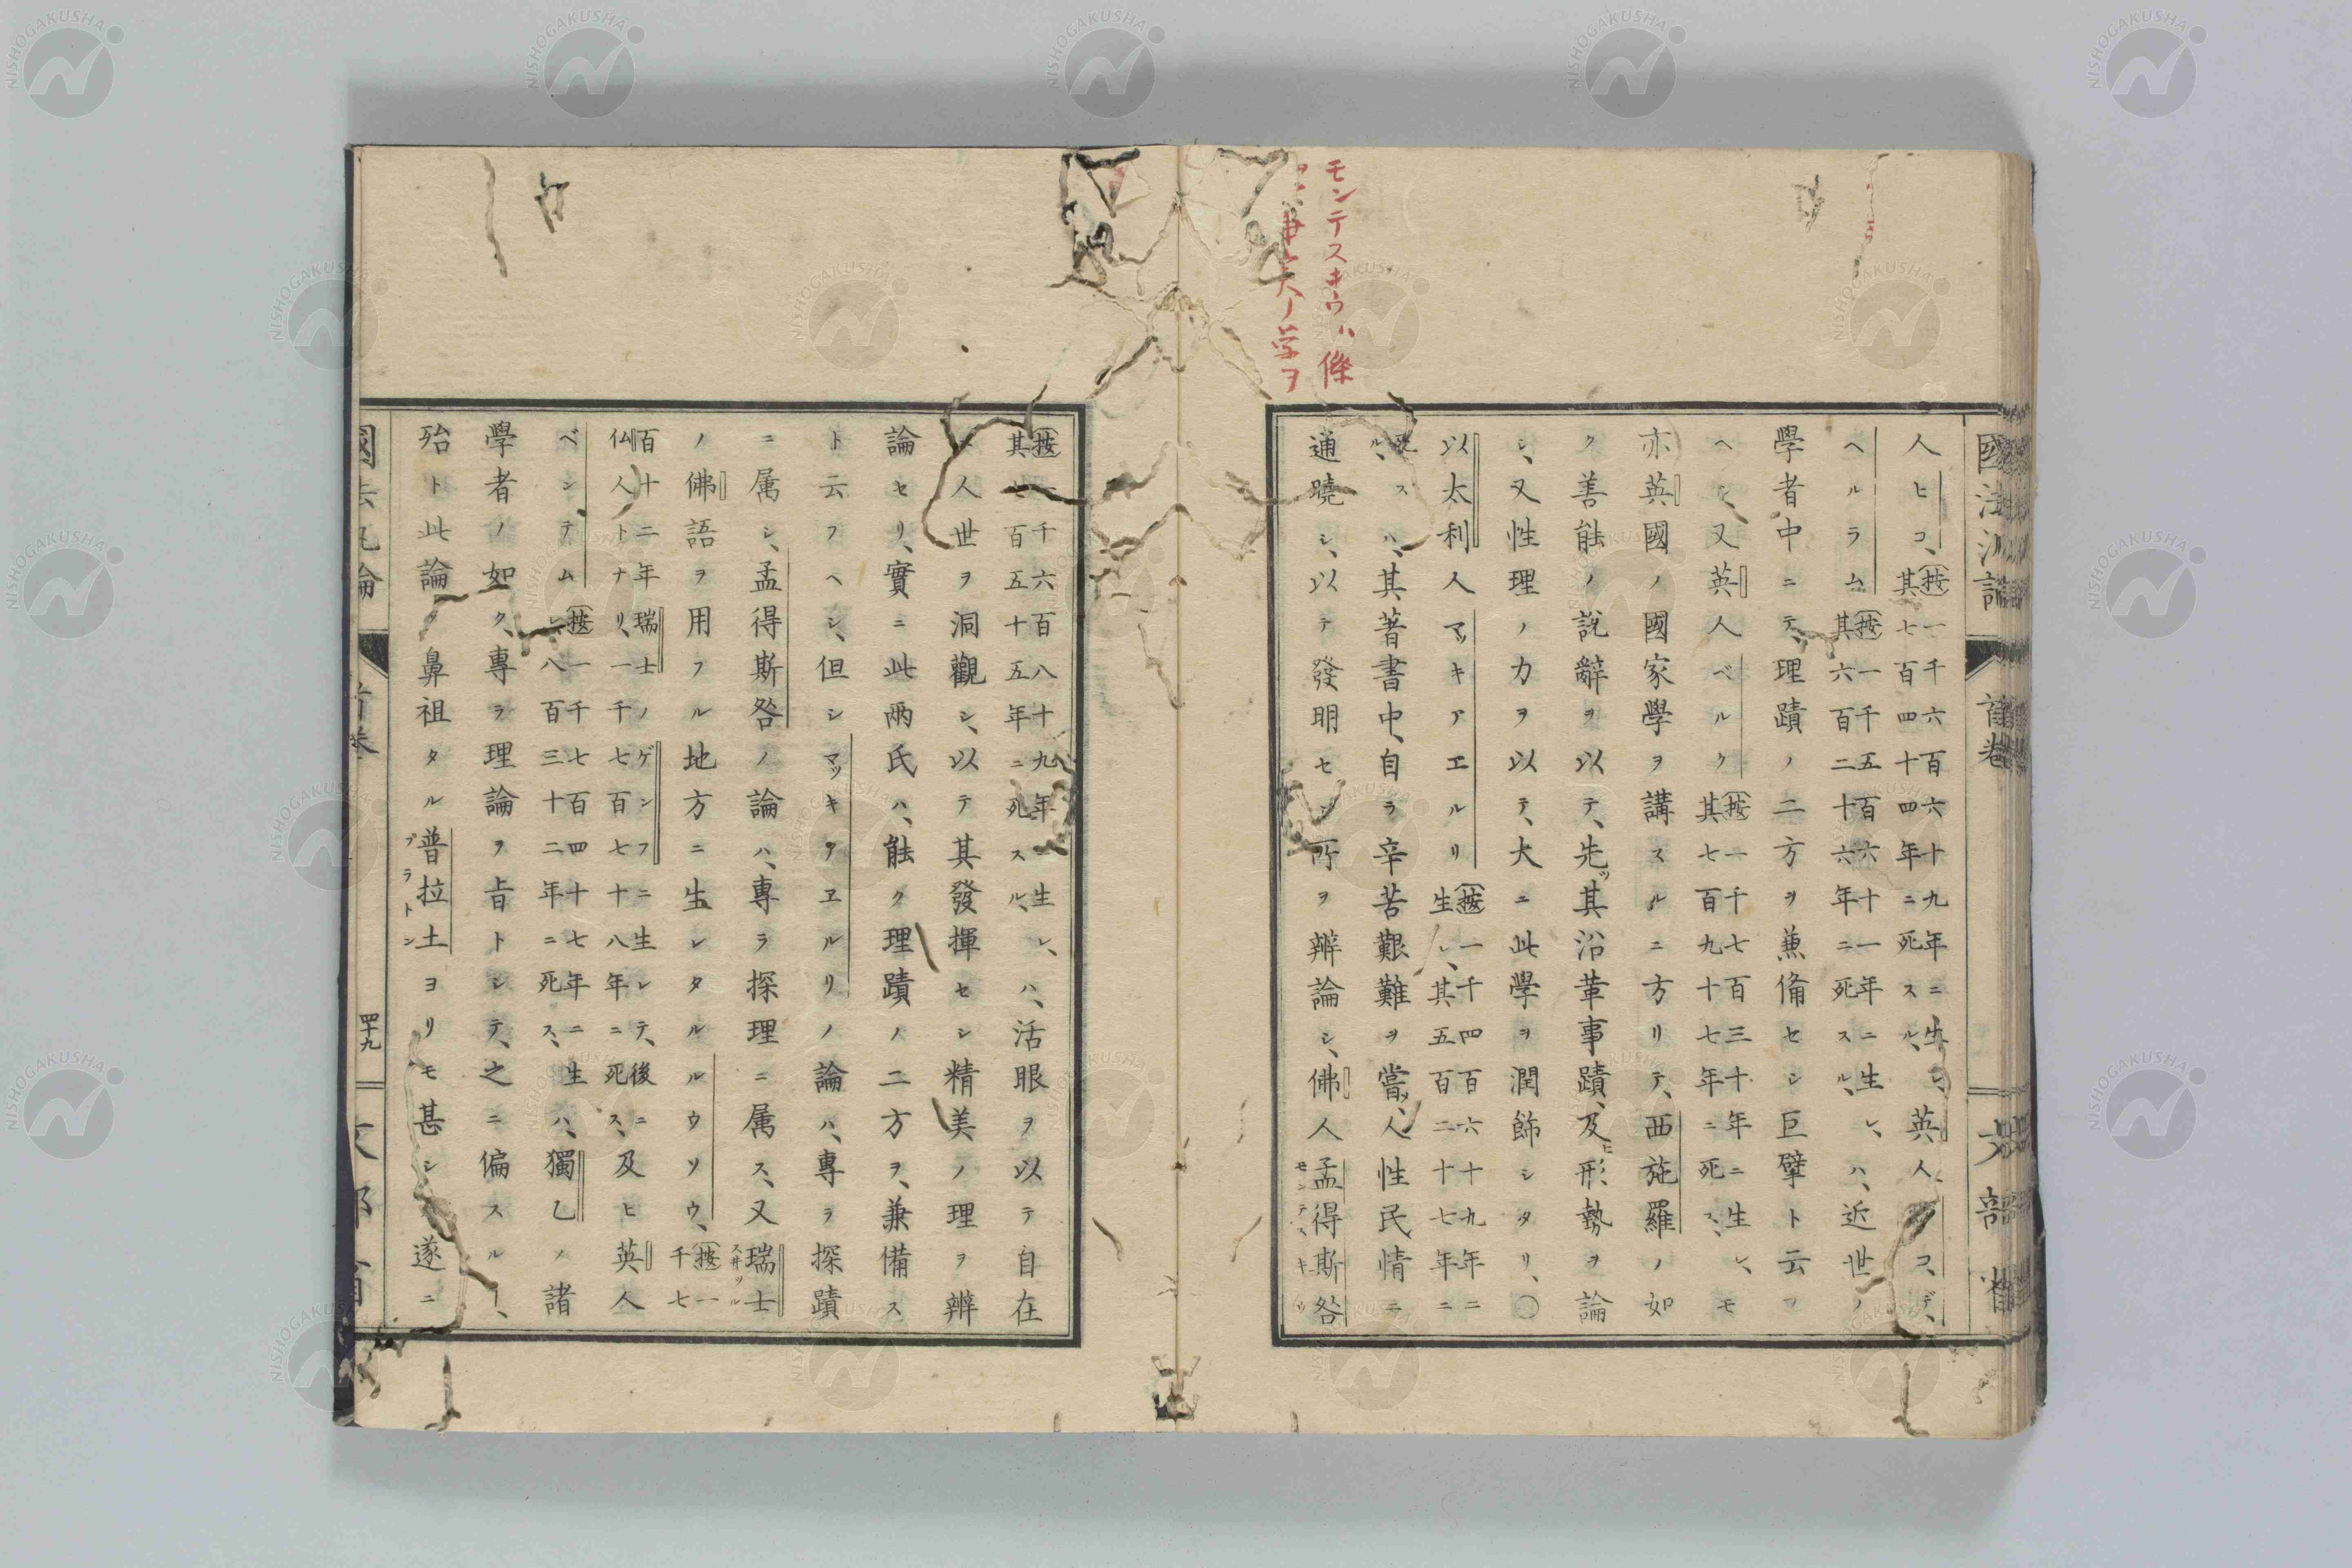 モンテスキウハ條
事実ノ学ヲ
國法汎論
首卷
文部省
人ヒコ、(按一千六百六十九年ニ生レ、其七百四十四年ニ死スル、英人
ヘルラム(按一千五百六十一年ニ生レ、其六百二十六年ニ死スル、ハ、近世ノ
學者中ニテ、理蹟ノ二方ヲ兼備セシ巨擘ト云フ
ヘシ、又英人ベルク(按一千七百三十年ニ生レ、其七百九十七年ニ死ス、モ
亦英國ノ國家學ヲ講スルニ方リテ、西施羅ノ如
ク善能ノ說辭ヲ以テ、先ツ其沿革事蹟、及ヒ形勢ヲ論
シ、又性理ノ力ヲ以テ、大ニ此學ヲ潤飾シタリ、〇
以太利人マッキアエルリ(按一千四百六十九年ニ生レ、其五百二十七年ニ
死スル、ハ、其著書中、自ラ辛苦艱難ヲ嘗メ、人性民情ニ
通曉シ、以テ發明セシ所ヲ辨論シ、佛人孟得斯咎
モンテスキウ
(按一千六百八十九年ニ生レ、其七百五十五年ニ死スル、ハ、活眼ヲ以テ自在
ニ人世ヲ洞觀シ、以テ其發揮セシ精美ノ理ヲ辨
論セリ、實ニ此兩氏ハ、能ク理蹟ノ二方ヲ、兼備ス
ト云フヘシ、但シマッキアエルリノ論ハ、專ラ探蹟
ニ属シ、孟得斯咎ノ論ハ、專ラ探理ニ属ス、又瑞士
スヰツル
ノ佛語ヲ用フル地方ニ生レタルルウソウ、(按一千七
百十二年瑞士ノゲンフニ生レテ、後ニ仏人トナリ、一千七百七十八年ニ死ス、及ヒ英人
ベンテム(按一千七百四十七年ニ生レ、八百三十二年ニ死ス、ハ、獨乙ノ諸
學者ノ如ク、專ラ理論ヲ旨トシテ、之ニ偏スル、
殆ト此論ノ鼻祖タル普拉土ヨリモ甚シ、遂ニ
プラトン
國法汎論
首卷
四十九
文部省